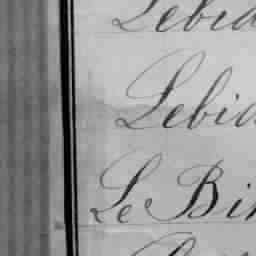 Lebid
Lebid
Le Bi